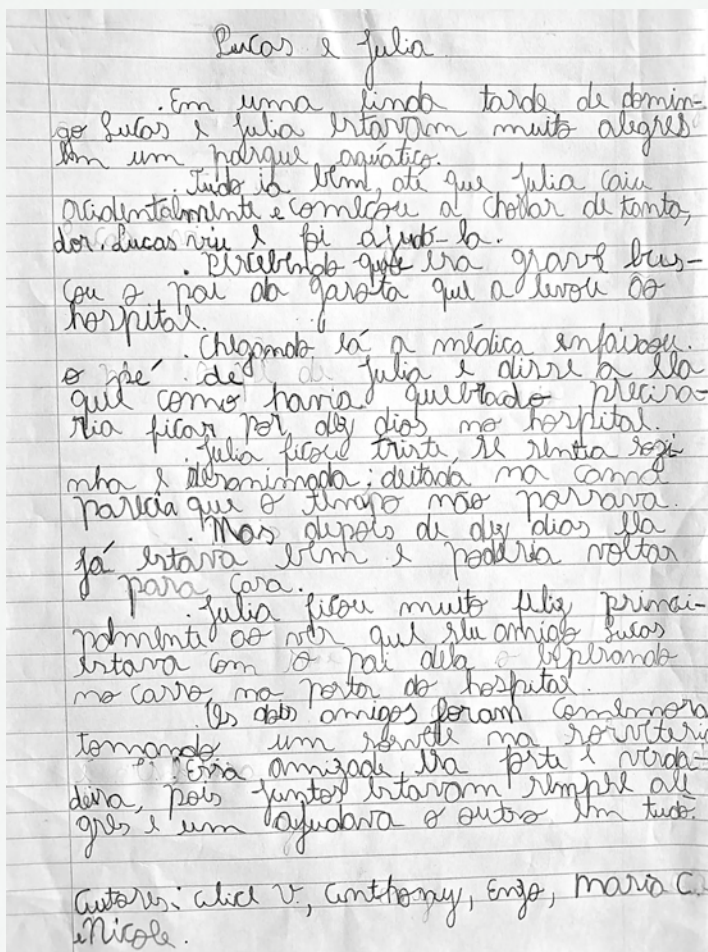 Lucas e Julia
.Em uma linda tarde de domin-
go Lucas e Julia estavam muito alegres
em um parque aquático.
.Tudo ia bem, até que Julia caiu
acidentalmente e começou a chorar de tanta,
dor. Lucas viu e foi ajudá-la.
.Percebendo que era grave bus-
cou o pai da garota que a levou ao
hospital.
.Chegando lá a médica enfaixou.
o pé de Julia e disse a ela
que como havia quebrado precisa-
ria ficar por dez dias no hospital.
.Julia ficou triste, se sentia sozi-
nha e desanimada; deitada na cama
parecia que o tempo não passava.
.Mas depois de dez dias ela
já estava bem e poderia voltar
para casa.
.Julia ficou muito feliz princi-
palmente ao ver que seu amigo Lucas
estava com o pai dela a esperando
no carro, na porta do hospital.
.Os dois amigos foram comemora
tomando um sorvete na sorveteri
.Essa amizade era forte e verda-
deira, pois juntos estavam sempre ale
gres e um ajudava o outro em tudo.
Autores: Alice V., Anthony, Enzo, Maria C.
e Nicole.